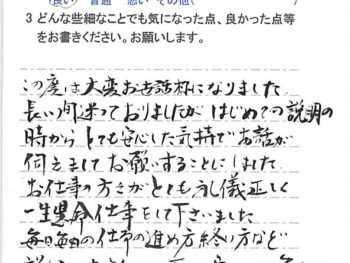 良い 普通 悪い その他( )
3 どんな些細なことでも気になった点、良かった点等
をお書きください。お願いします。
この度は大変お世話になりました
長い間迷っておりましたが はじめての説明の
時から とても安心した気持でお話が
伺えましてお願いすることにしました
お仕事の方々がとても礼儀正しく
一生懸命仕事をして下さいました
毎日毎日の仕事の進め方終い方など